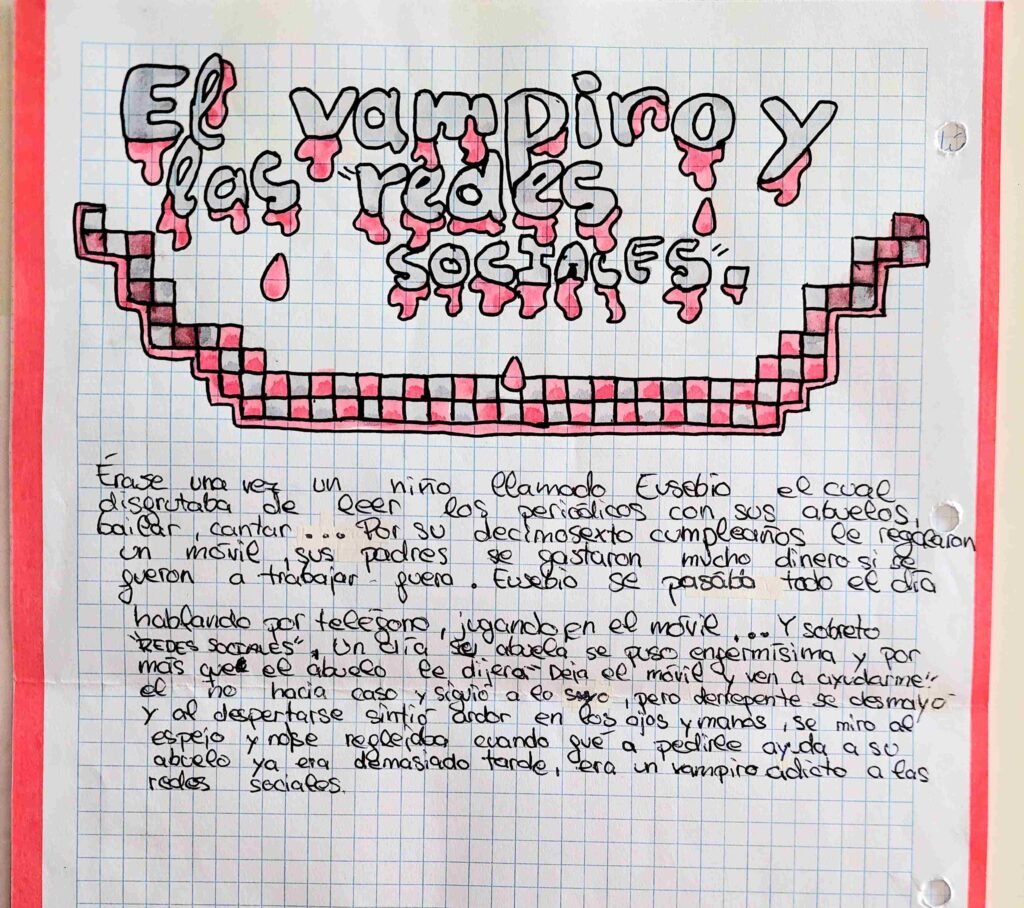 El vampiro y
las "redes
sociales".
Érase una vez un niño llamado Eusebio el cual
disfrutaba de leer los periódicos con sus abuelos,
bailar, cantar... Por su decimosexto cumpleaños le regalaron
un móvil, sus padres se gastaron mucho dinero si se
fueron a trabajar fuera. Eusebio se pasaba todo el día
hablando por teléfono, jugando en el móvil... Y sobreto
"REDES SOCIALES". Un día su abuela se puso enfermísima y por
más que el abuelo le dijera "Deja el móvil y ven a ayudarme"
el no hacia caso y siguió a lo suyo, pero derrepente se desmayó
y al despertarse sintió ardor en los ojos y manos, se miro al
espejo y nose reflejaba cuando fué a pedirle ayuda a su
abuelo ya era demasiado tarde, era un vampiro adicto a las
redes sociales.